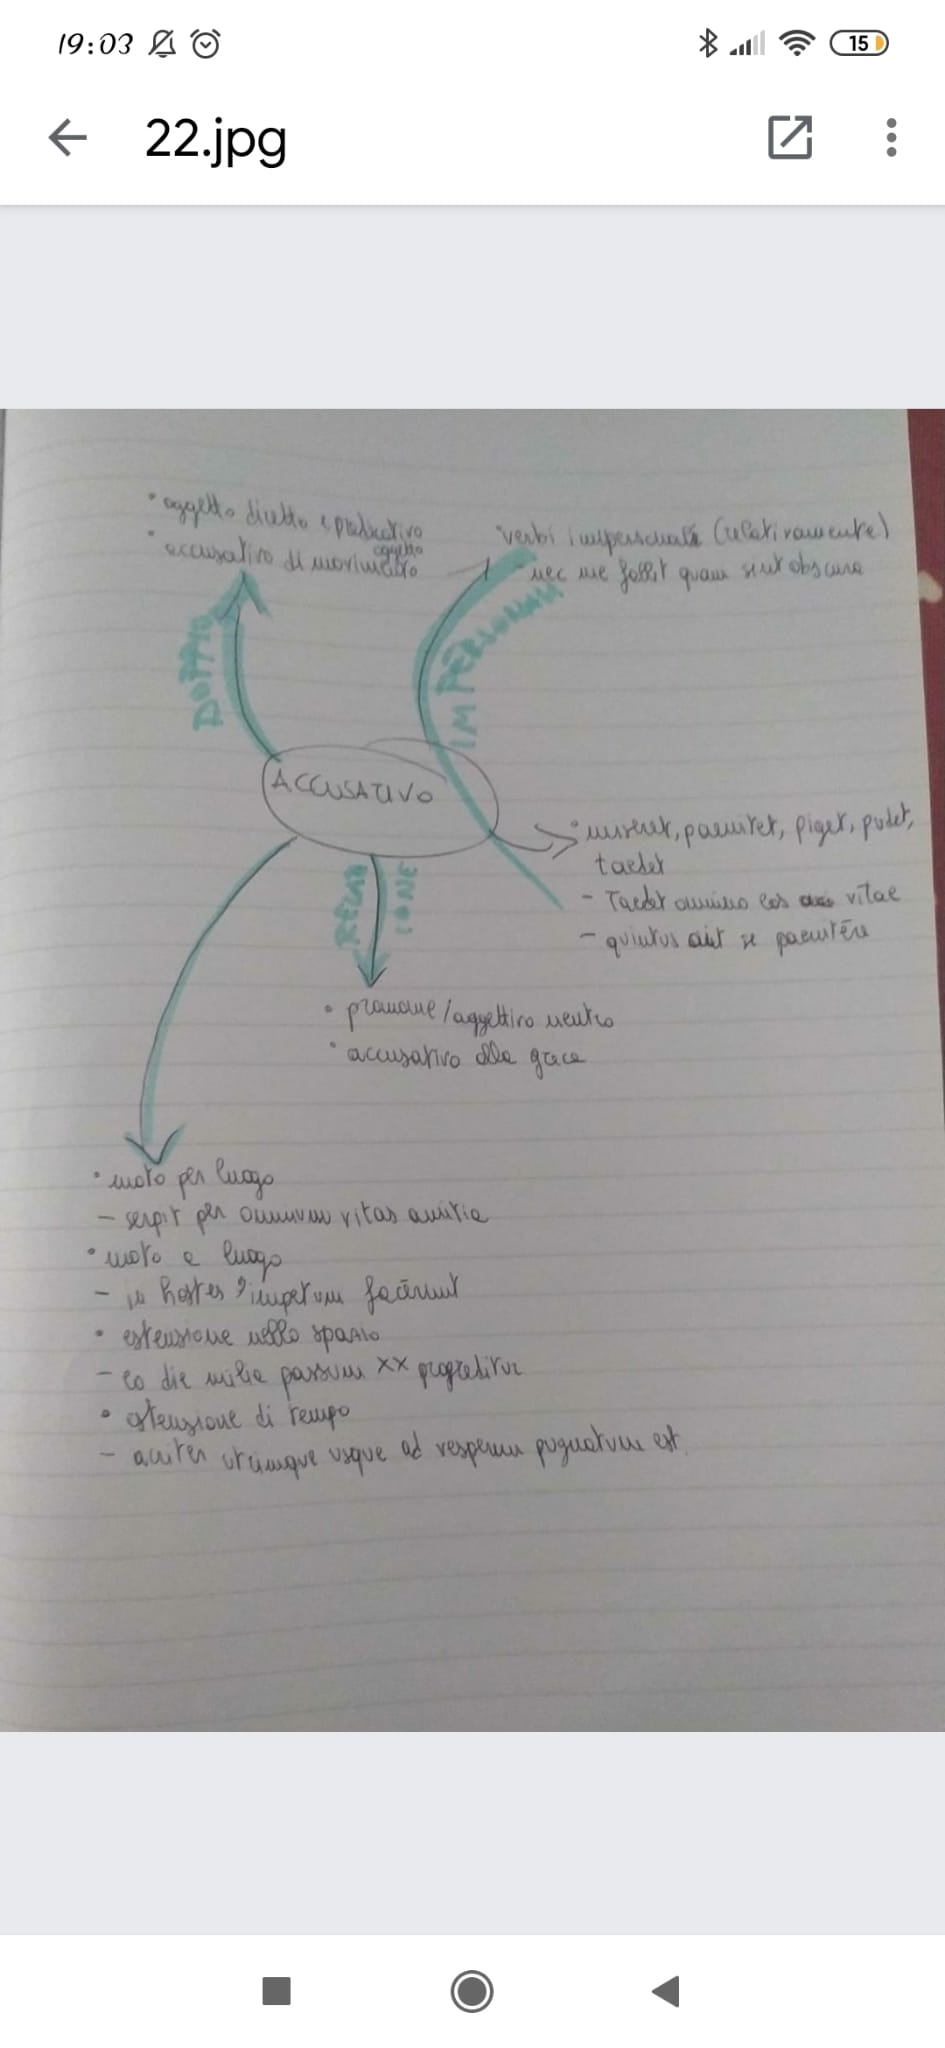 19:03
15
22.jpg
• oggetto diretto e predicativo
oggetto
• accusativo di movimento
DOPPIO
• verbi impersonali (relativamente)
- nec me fallit quam sint obscura
IMPERSONALI
ACCUSATIVO
• miseret, paenitet, piget, pudet,
taedet
- Taedet omnino eos vitae
- quintus ait se paenitēre
RELAZ
IONE
• pronome/aggettivo neutro
• accusativo alla greca
• moto per luogo
- serpit per omnium vitas amitia
• moto a luogo
- in hostes impetum facērunt
• estensione nello spazio
- eo die milia passum XX progreditur
• estensione di tempo
- acriter utrimque usque ad vesperum pugnatum est.